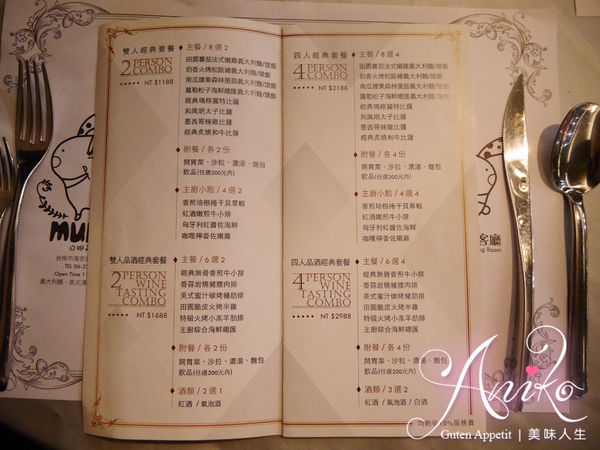 雙人經典套餐
2 PERSON COMBO
NT $1188
主餐/8選2
田園蕃茄法式嫩雞義大利麵/燉飯
奶香火烤松阪豬義大利麵/燉飯
南瓜腰果森林菌菇義大利麵/燉飯
蘿勒松子海鮮總匯義大利麵/燉飯
經典瑪格麗特比薩
和風明太子比薩
墨西哥辣雞比薩
經典炙燒和牛比薩
附餐/各2份
開胃菜、沙拉、濃湯、麵包
飲品(任選200元內)
主廚小點/4選2
香煎培根捲干貝草蝦
紅酒嫩煎牛小排
匈牙利紅醬佐海鮮
咖哩檸香佐嫩雞
雙人品酒經典套餐
2 PERSON WINE TASTING COMBO
NT $1688
主餐/6選2
經典無骨香煎牛小排
香蒜岩燒豬腰內排
美式蜜汁碳烤豬肋排
田園脆皮火烤半雞
特級火烤小羔羊肋排
主廚綜合海鮮總匯
附餐/各2份
開胃菜、沙拉、濃湯、麵包
飲品(任選200元內)
酒類/2選1
紅酒/氣泡酒
四人經典套餐
4 PERSON COMBO
NT $2188
主餐/8選4
田園蕃茄法式嫩雞義大利麵/燉飯
奶香火烤松阪豬義大利麵/燉飯
南瓜腰果森林菌菇義大利麵/燉飯
蘿勒松子海鮮總匯義大利麵/燉飯
經典瑪格麗特比薩
和風明太子比薩
墨西哥辣雞比薩
經典炙燒和牛比薩
附餐/各4份
開胃菜、沙拉、濃湯、麵包
飲品(任選200元內)
主廚小點/4選4
香煎培根捲干貝草蝦
紅酒嫩煎牛小排
匈牙利紅醬佐海鮮
咖哩檸香佐嫩雞
四人品酒經典套餐
4 PERSON WINE TASTING COMBO
NT $2988
主餐/6選4
經典無骨香煎牛小排
香蒜岩燒豬腰內排
美式蜜汁碳烤豬肋排
田園脆皮火烤半雞
特級火烤小羔羊肋排
主廚綜合海鮮總匯
附餐/各4份
開胃菜、沙拉、濃湯、麵包
飲品(任選200元內)
酒類/3選2
紅酒/氣泡酒/白酒
均酌收10%服務費
台南市海安
TEL 06-2
Open Time 1
義大利麵、美式漢
客廳
ng Room
Aniko
Guten Appetit | 美味人生